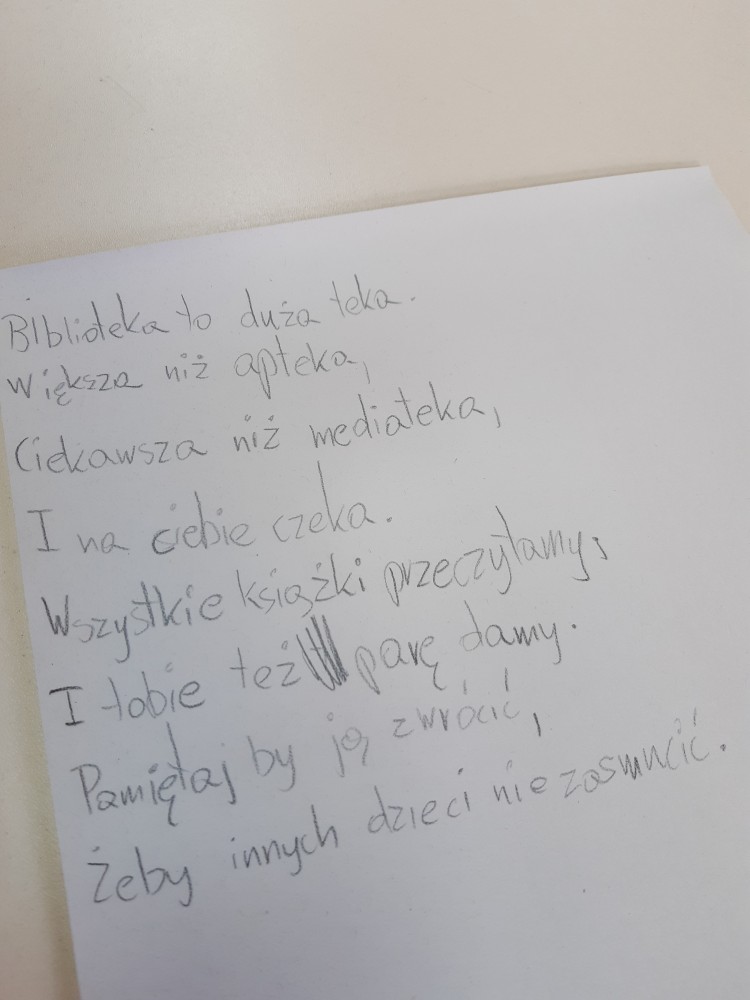 Biblioteka to duża teka.
Większa niż apteka,
Ciekawsza niż mediateka,
I na ciebie czeka.
Wszystkie książki przeczytamy,
I tobie też parę damy.
Pamiętaj by ją zwrócić,
Żeby innych dzieci nie zasmucić.